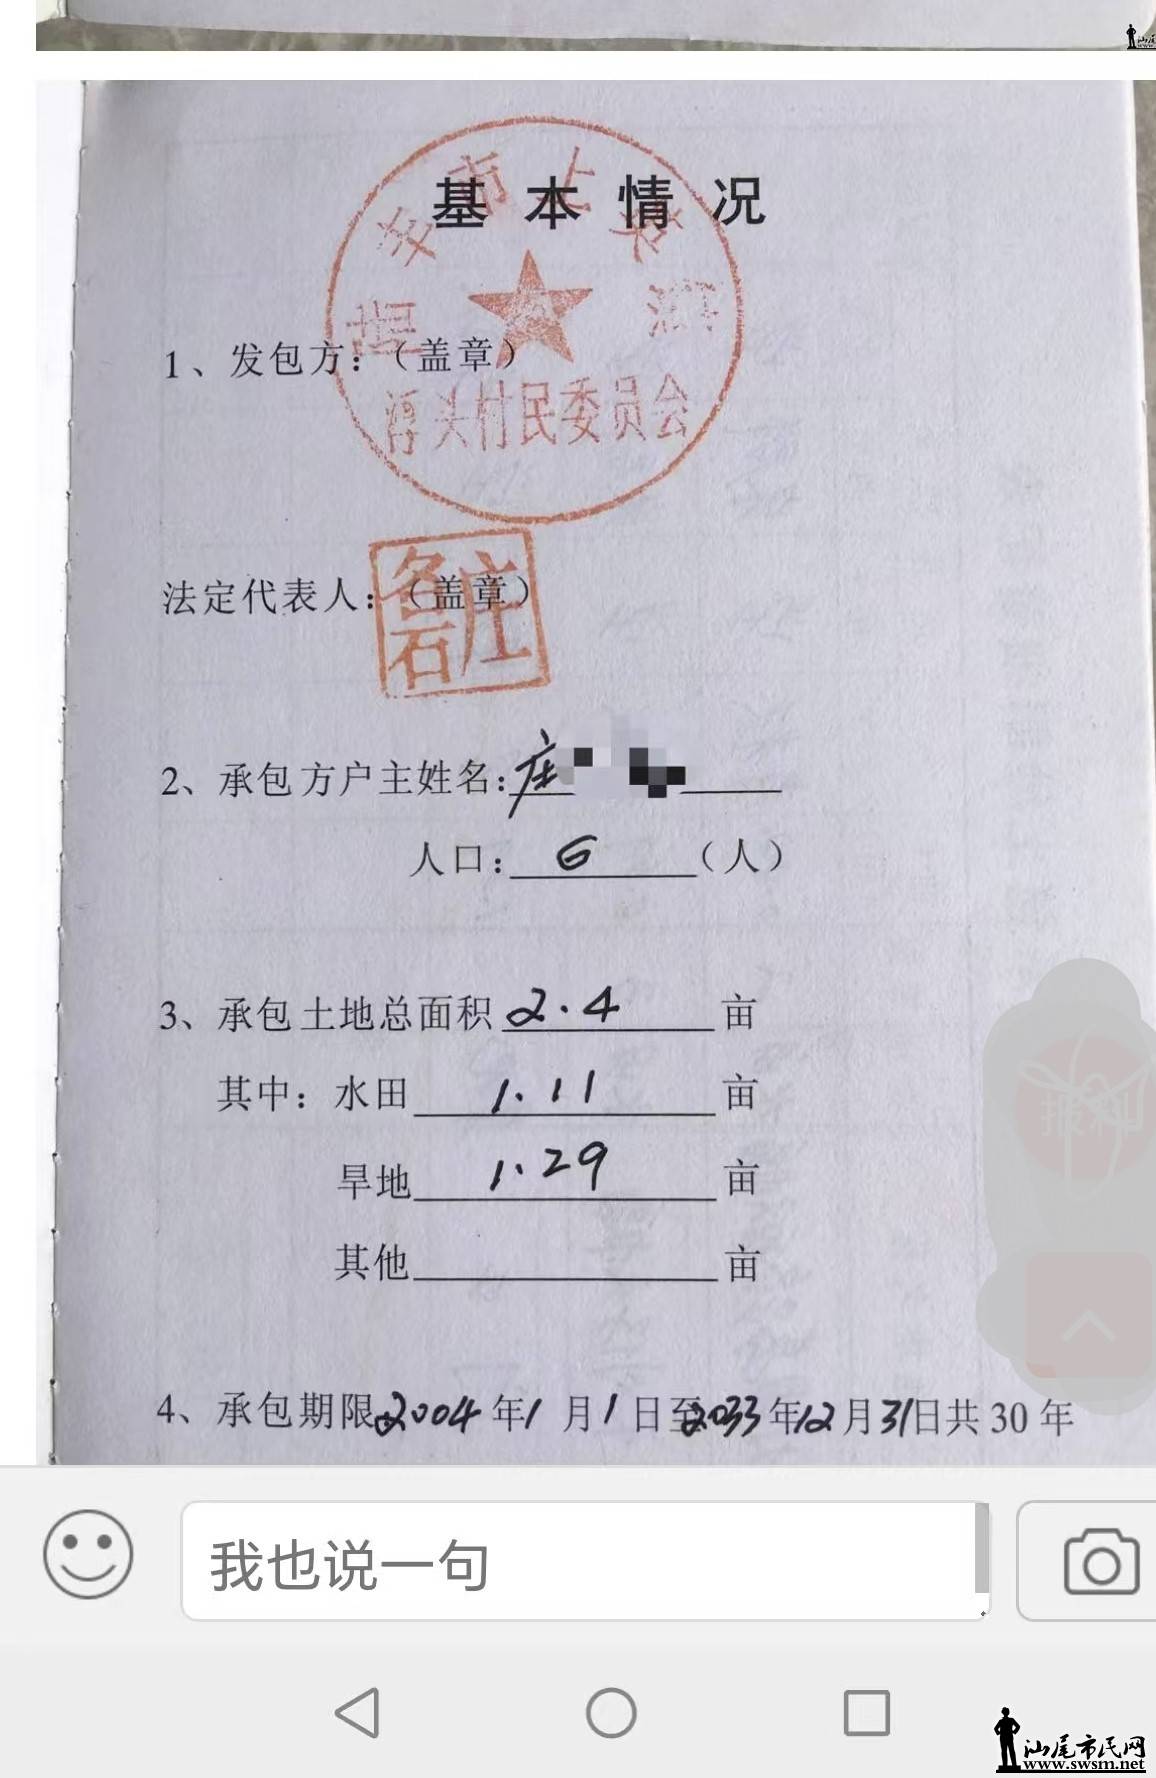 基本情况
1、发包方：（盖章）
头村民委员会
法定代表人：（盖章）
2、承包方户主姓名：庄
人口：6（人）
3、承包土地总面积2.4亩
其中：水田1.11亩
旱地1.29亩
其他亩
4、承包期限2004年1月1日至2033年12月31日共30年
我也说一句
汕尾市民网
www.swsm.net